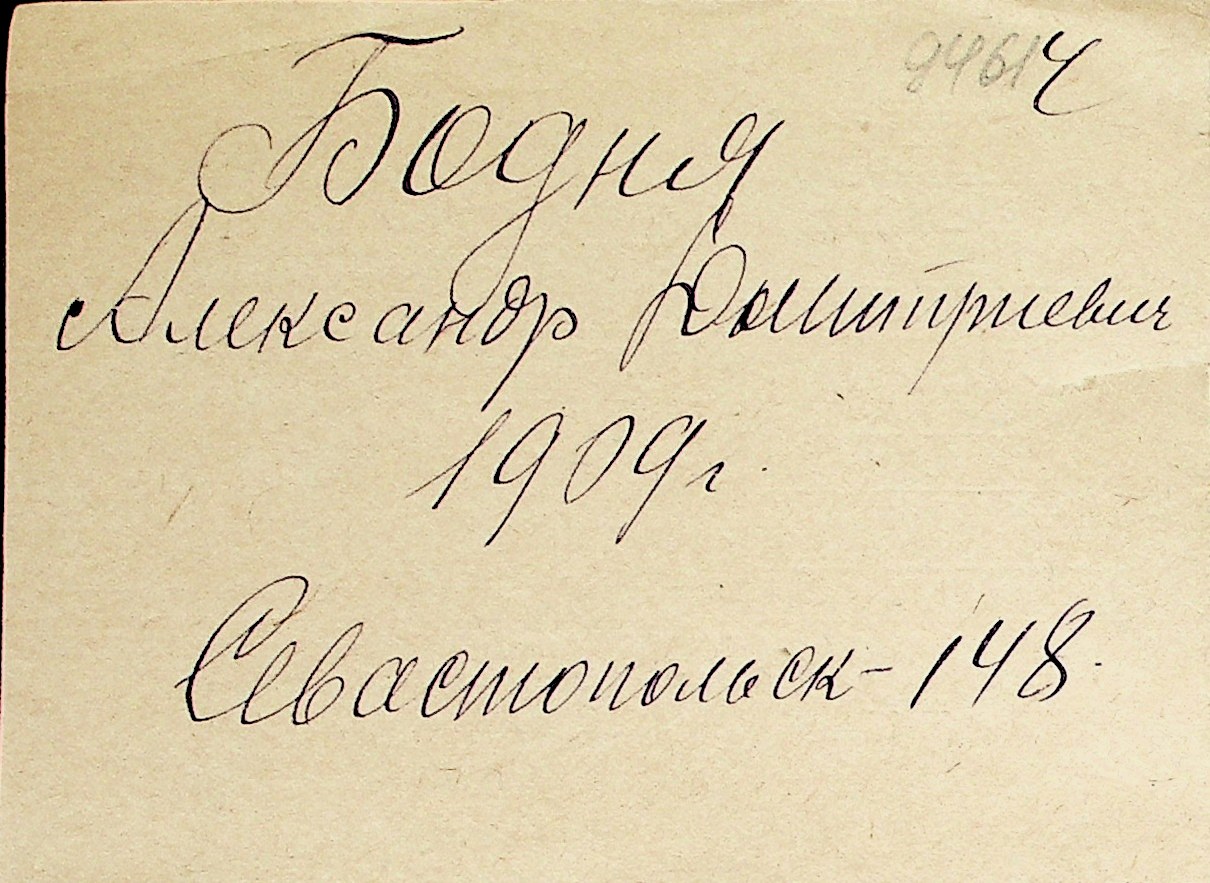 94614
Бодня
Александр Дмитриевич
1909 г.
Севастопольск-148.